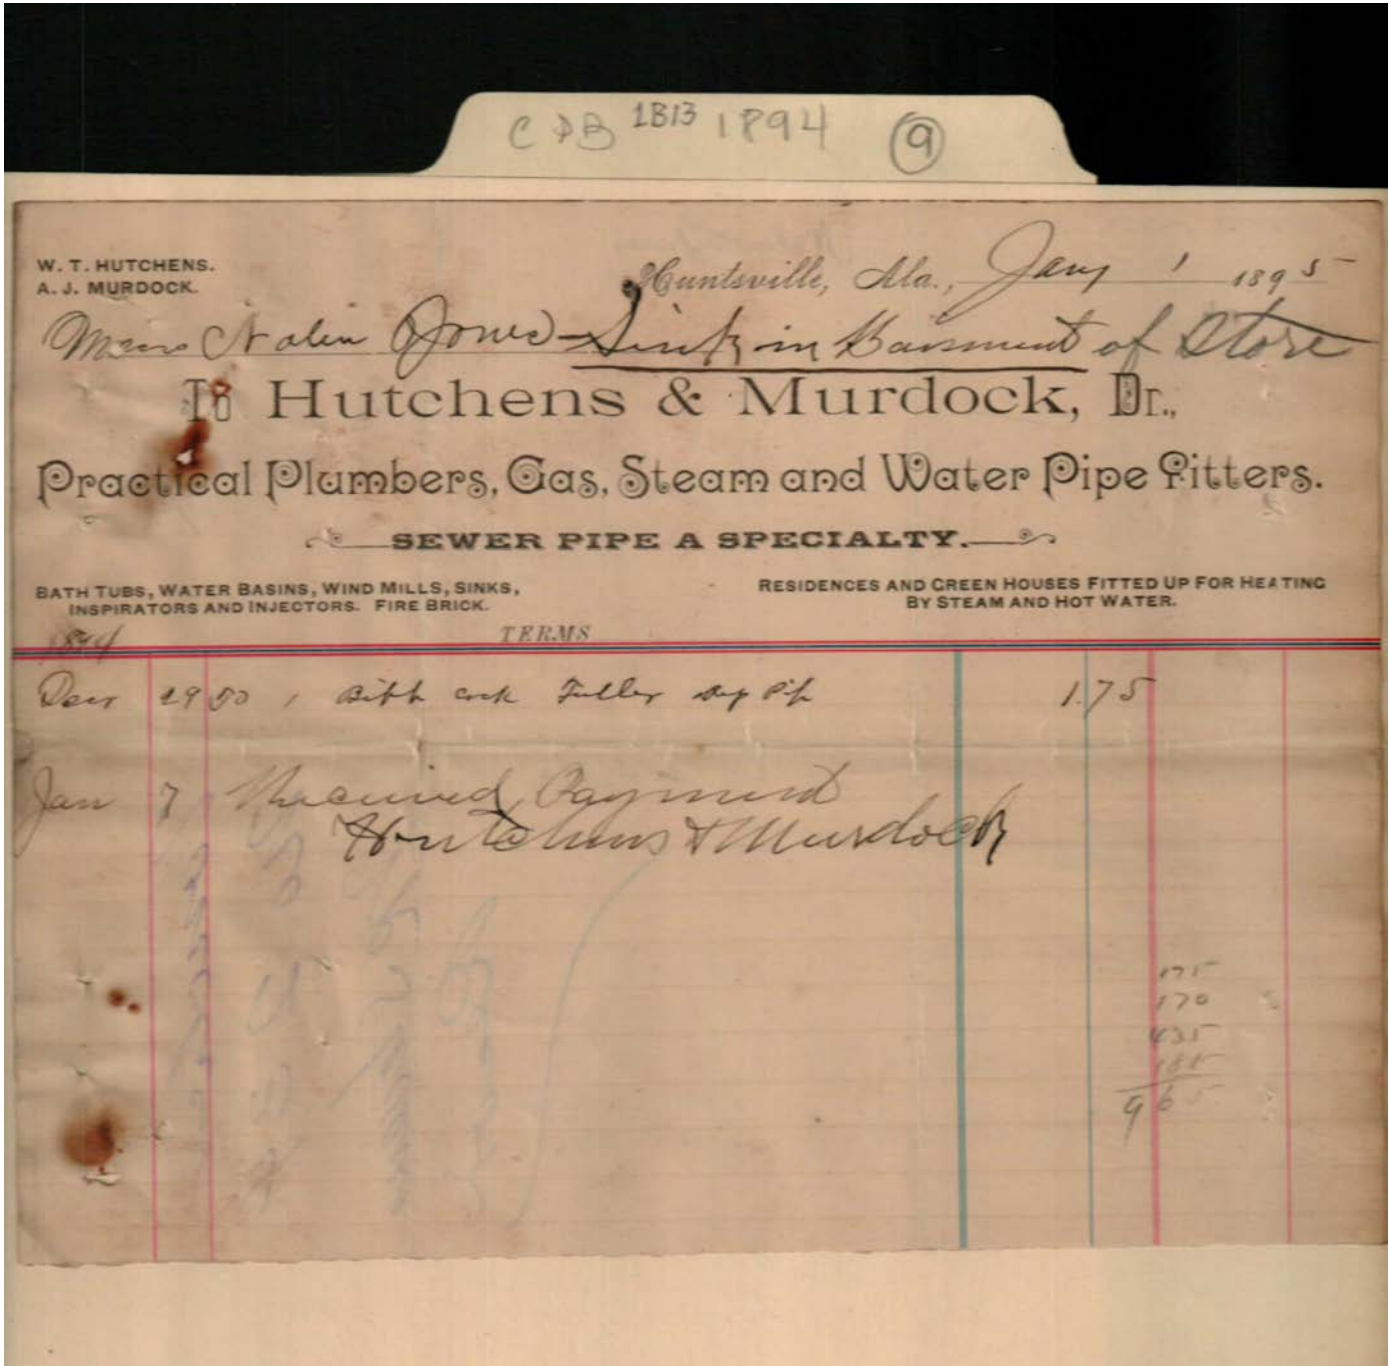 C & B 1813 1894 9
W. T. HUTCHENS.
A. J. MURDOCK.
Huntsville, Ala., Jany 1 1895
Sink in Basment of Store
To Hutchens & Murdock, Dr.,
Practical Plumbers, Gas, Steam and Water Pipe Fitters.
SEWER PIPE A SPECIALTY.
BATH TUBS, WATER BASINS, WIND MILLS, SINKS,
INSPIRATORS AND INJECTORS. FIRE BRICK.
RESIDENCES AND GREEN HOUSES FITTED UP FOR HEATING
BY STEAM AND HOT WATER.
1894 TERMS
29 50 1 Bibb cock Fuller 1.75
Jan 7 Received Payment
Hutchens & Murdock
175
170
435
185
965